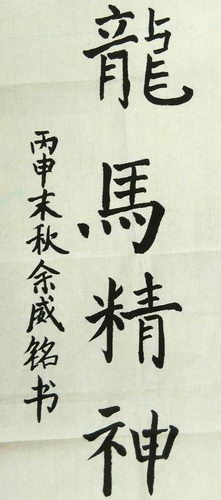 龍馬精神
丙申末秋余威銘书